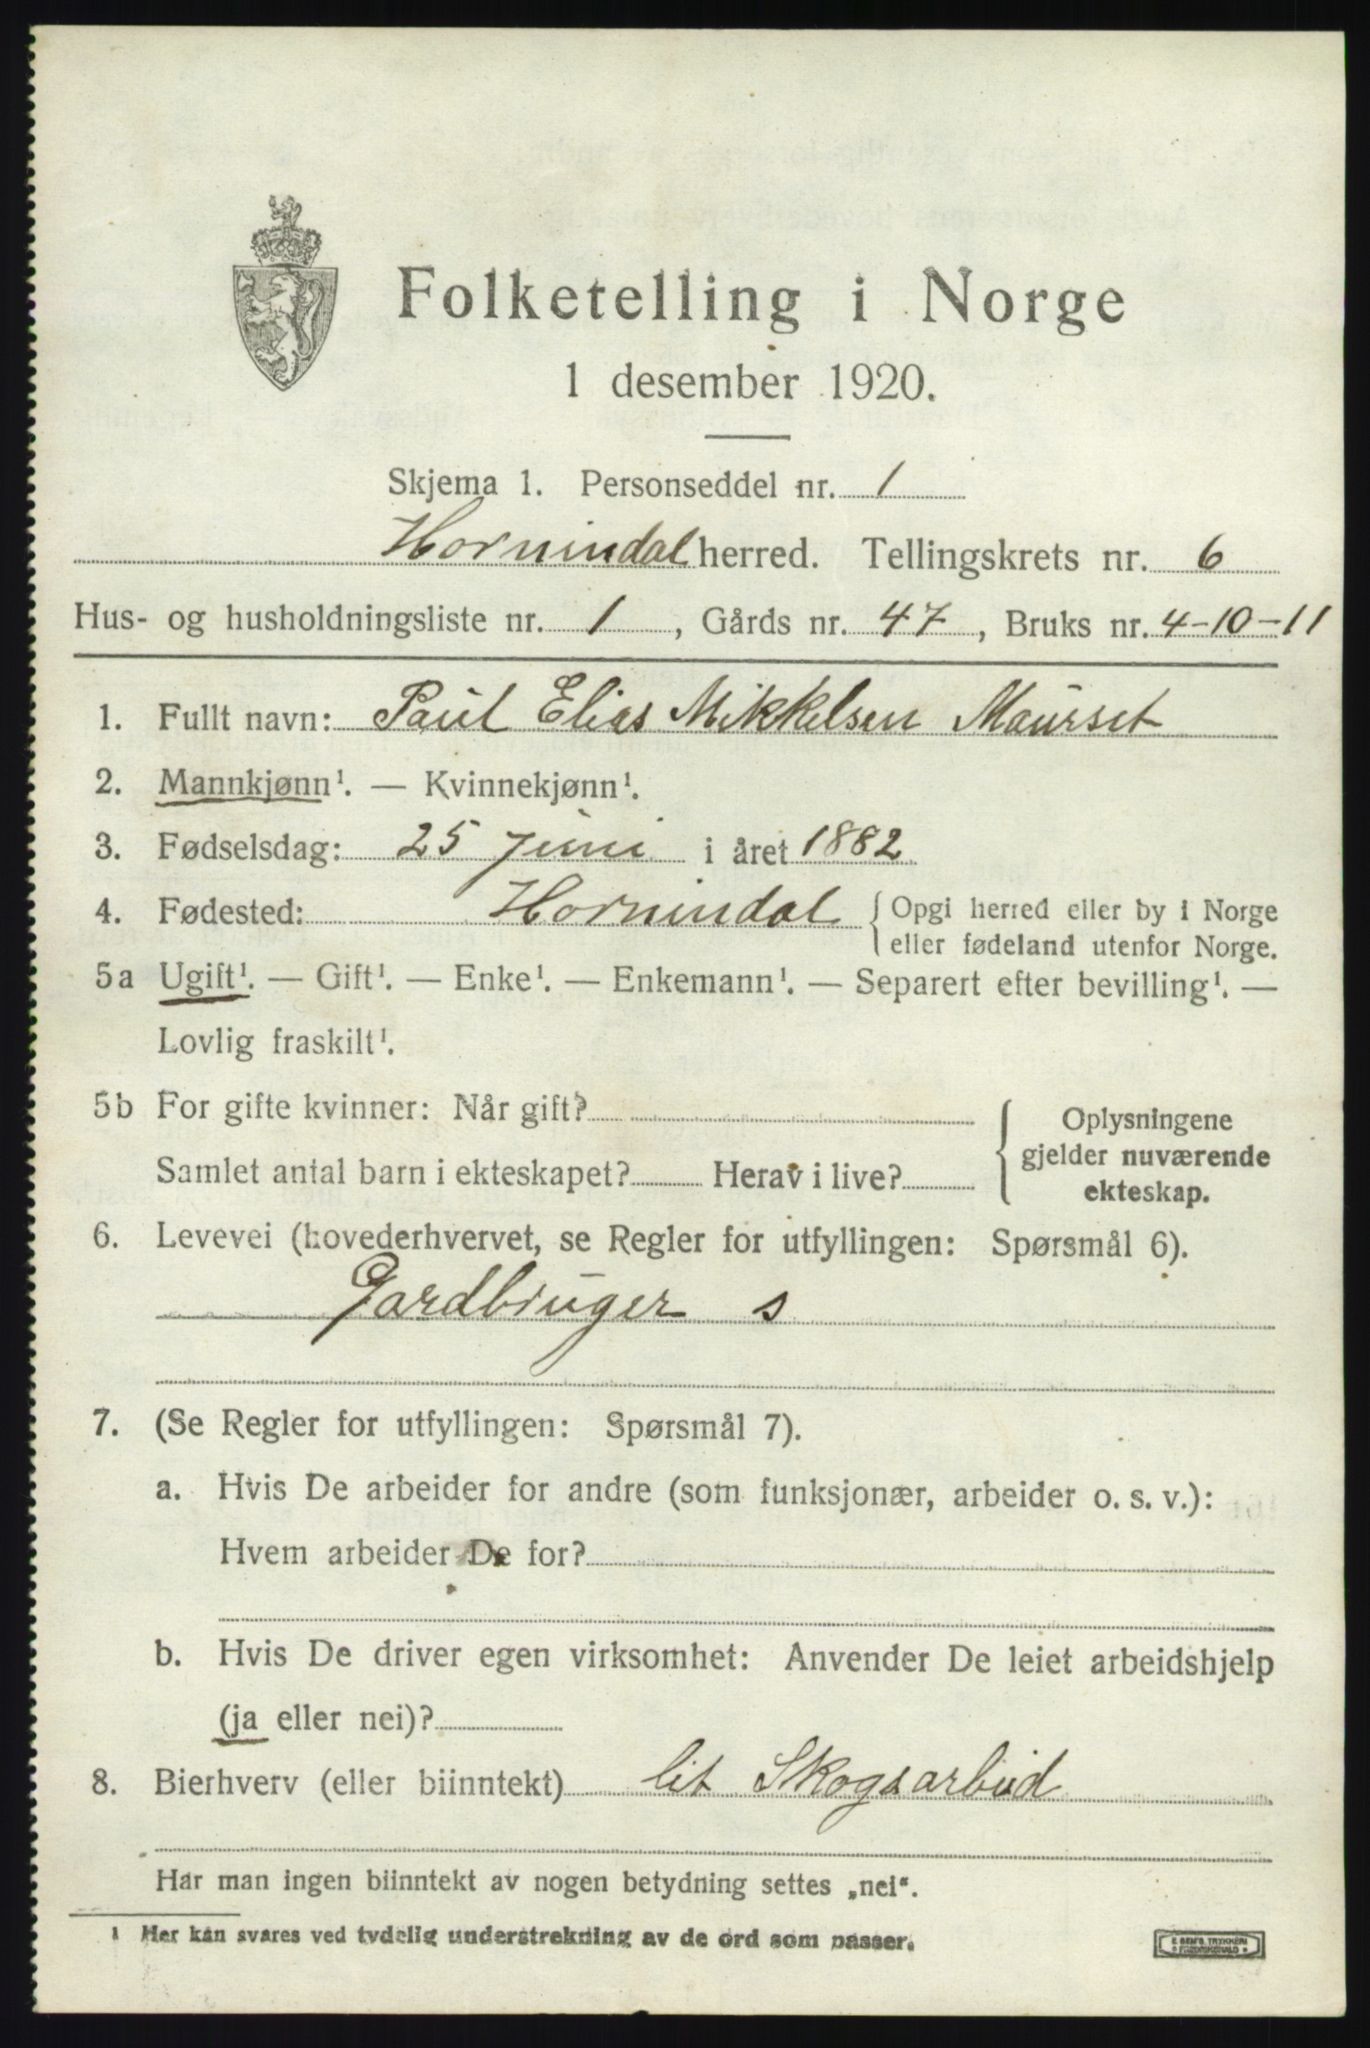 Folketelling i Norge
1 desember 1920.
Skjema 1. Personseddel nr. 1
Hornindal herred. Tellingskrets nr. 6
Hus- og husholdningsliste nr. 1, Gårds nr. 47, Bruks nr. 4-10-11
1. Fullt navn: Paul Elias Mikkelsen Maurset
2. Mannkjønn¹. — Kvinnekjønn¹.
3. Fødselsdag: 25 juni i året 1882
4. Fødested: Hornindal { Opgi herred eller by i Norge
eller fødeland utenfor Norge.
5a Ugift¹. — Gift¹. — Enke¹. — Enkemann¹. — Separert efter bevilling¹. —
Lovlig fraskilt¹.
5b For gifte kvinner: Når gift?
Samlet antal barn i ekteskapet? Herav i live?
{ Oplysningene
gjelder nuværende
ekteskap.
6. Levevei (hovederhvervet, se Regler for utfyllingen: Spørsmål 6).
Gardbruger s
7. (Se Regler for utfyllingen: Spørsmål 7).
a. Hvis De arbeider for andre (som funksjonær, arbeider o. s. v.):
Hvem arbeider De for?
b. Hvis De driver egen virksomhet: Anvender De leiet arbeidshjelp
(ja eller nei)?
8. Bierhverv (eller biinntekt) lit Skogsarbeid
Har man ingen biinntekt av nogen betydning settes „nei“.
¹ Her kan svares ved tydelig understrekning av de ord som passer.